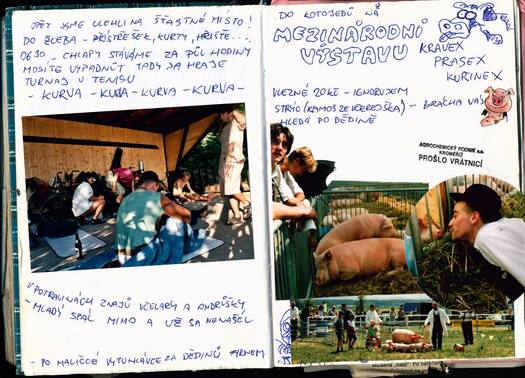 OPĚT JSME ULEHLI NA ŠŤASTNÉ MÍSTO!
DO ŽLEBA - PŘÍSTŘEŠEK, KURTY, HŘIŠTĚ...
06:30 - CHLAPY STÁVÁME ZA PŮL HODINY
MOSÍTE VYPADNÚT TADY SA HRAJE
TURNAJ V TENISU
- KURVA - KURVA - KURVA - KURVA -
V POTRAVINÁCH ZNAJŮ VČELARY A ONDRŮŠKY
- MLADÝ SPAL MIMO A UŽ SA NENAŠÉL
- PO MALIČKÉ ZA DĚDINŮ
DO KOTOJEDŮ NA
MEZINÁRODNÍ
VÝSTAVU
KRAVEX
PRASEX
KUŘINEX
VLEZNÉ 20 KČ - IGNORUJEM
STRÝC (KAMOŠ ZE VČEREJŠKA) -
HLEDÁ PO DĚDINĚ
AGROCHEMICKÝ PODNIK a.s.
KROMĚŘÍŽ
PROŠLO VRÁTNICÍ